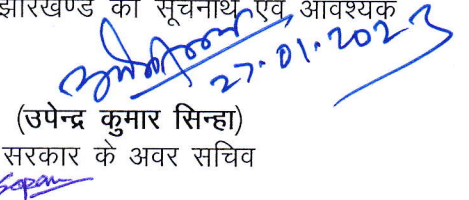 झारखण्ड को सूचनार्थ एवं आवश्यक
27.01.2023
(उपेन्द्र कुमार सिन्हा)
सरकार के अवर सचिव